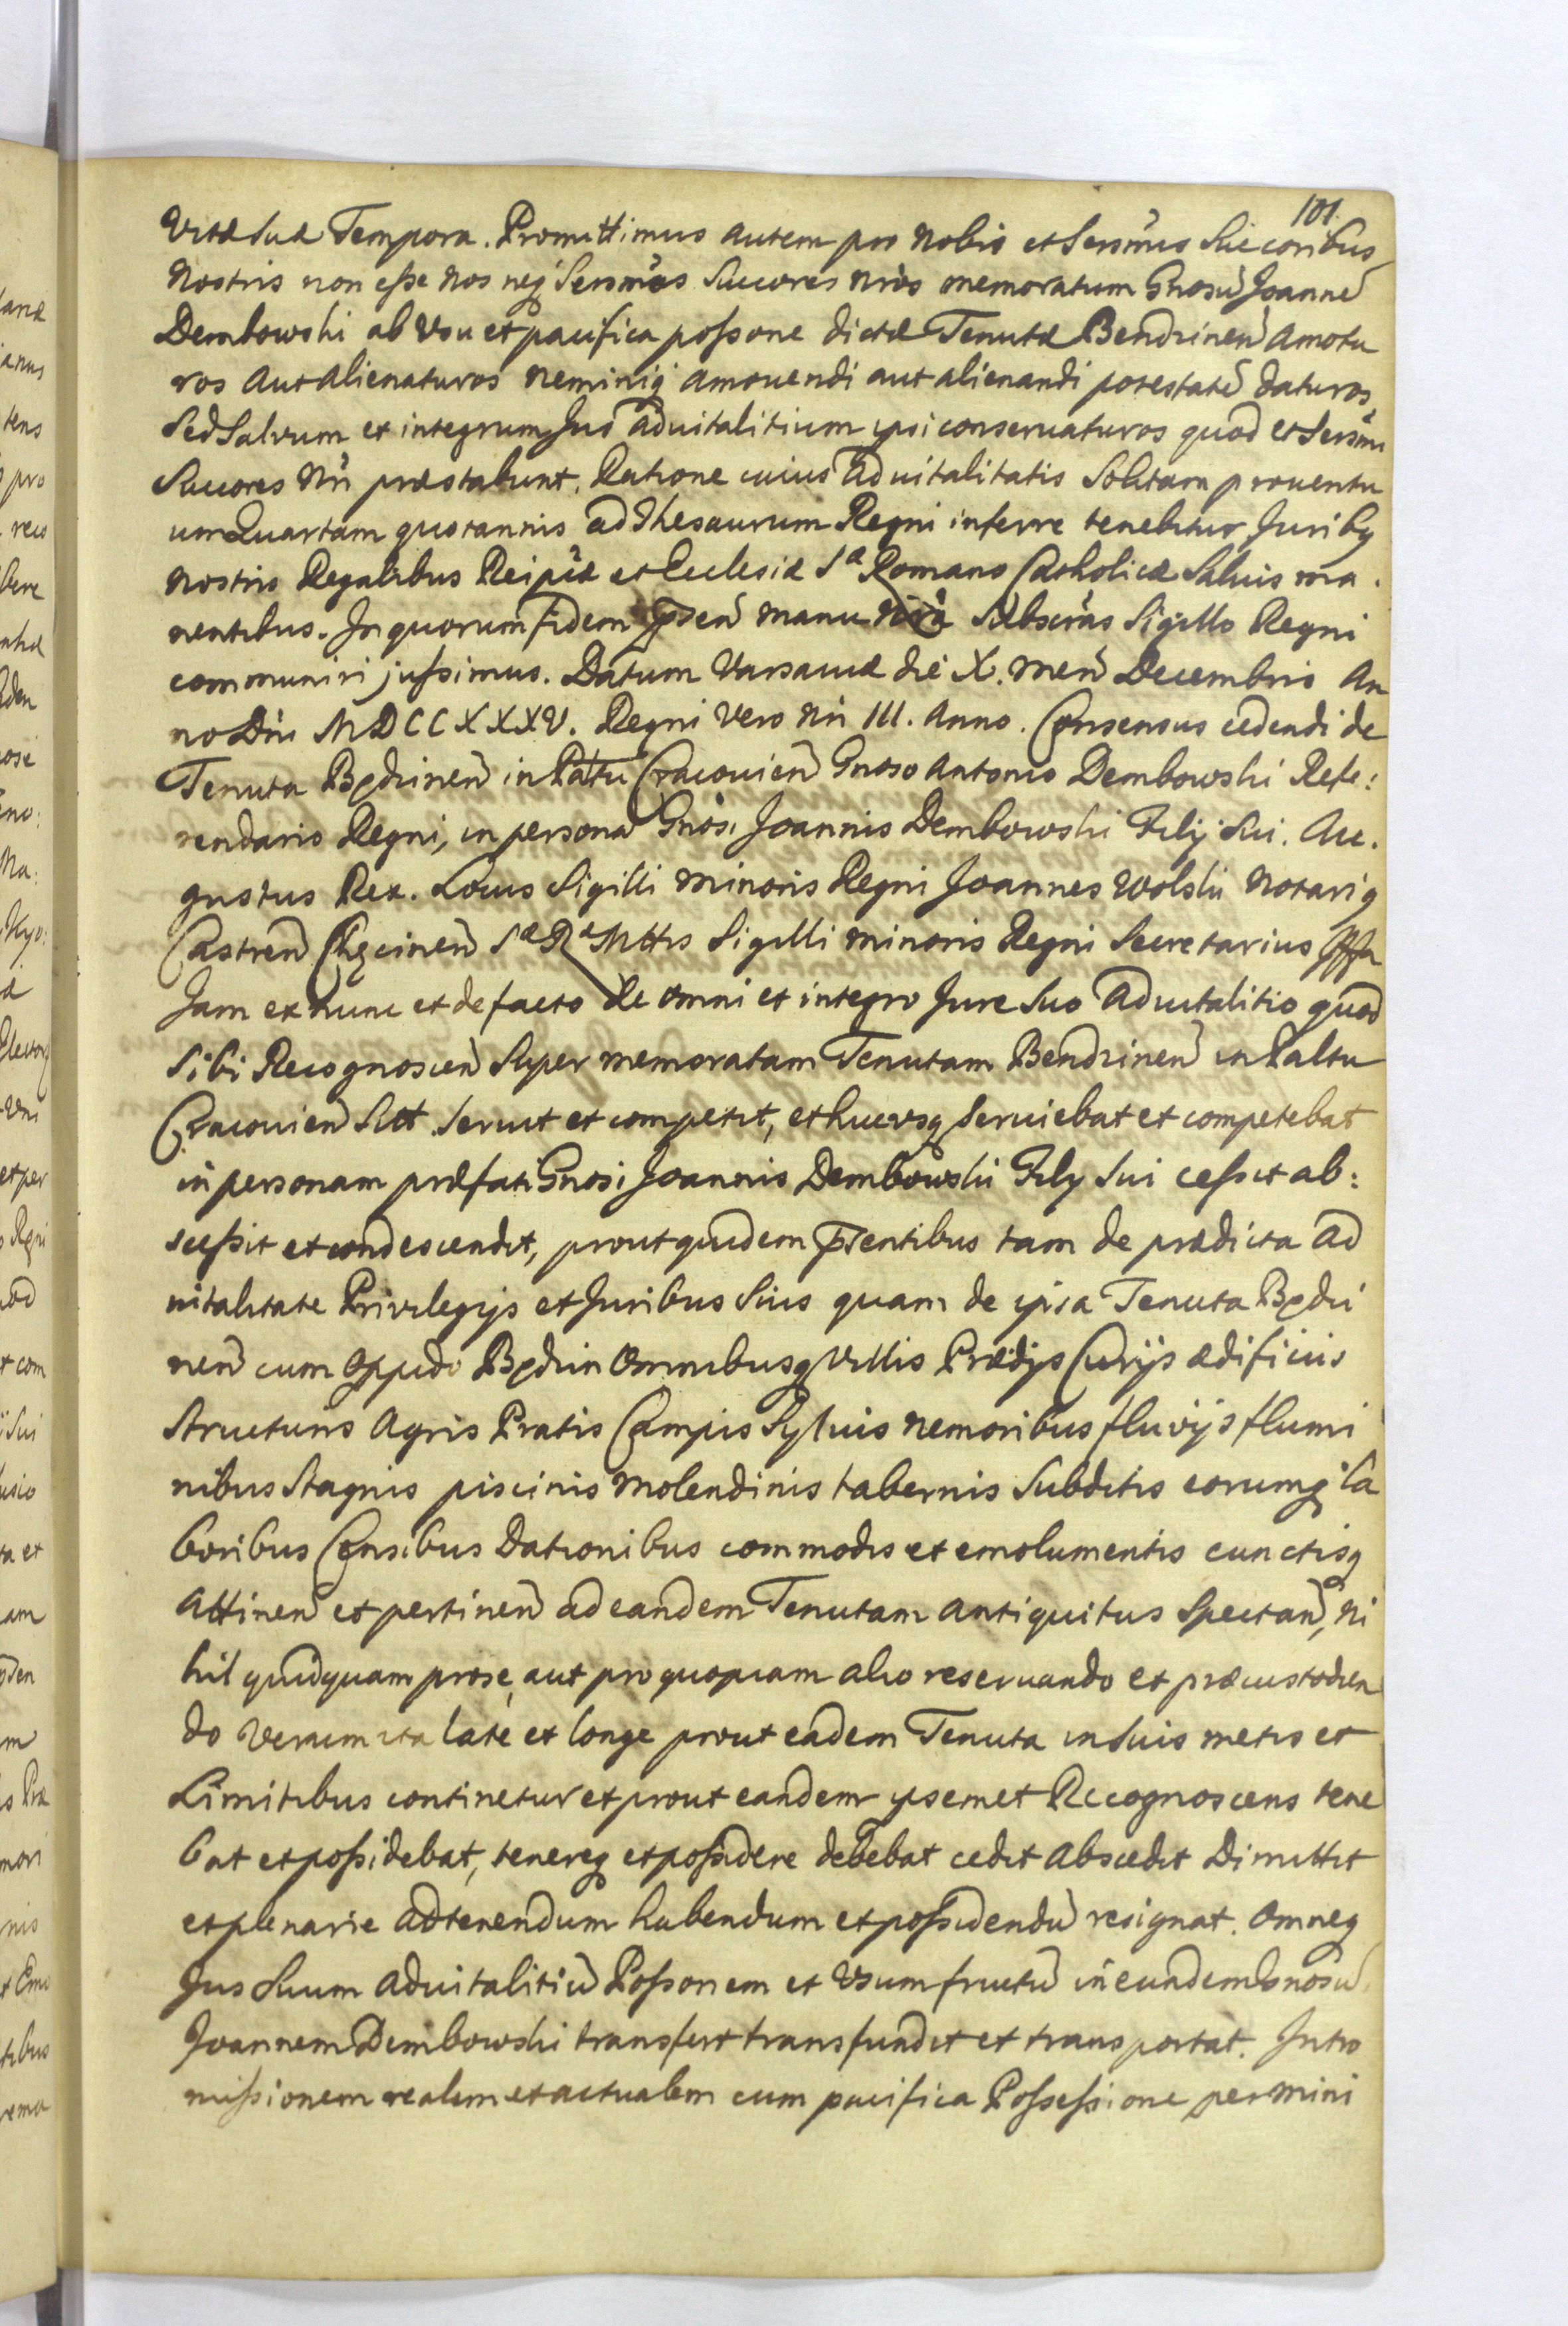 101.
Vitæ suæ Tempora. Promittimus autem pro Nobis et Sersmis Succoribus
Nostris non esse Nos neq Sersmos Succores nros memoratum Gnosu Joanne
Dembowski ab Usu et pacifica possone dictæ Tenutæ Bendzinen amotu
ros aut alienaturos neminiq amouendi aut alienandi potestate daturos
sed Salvum et integrum Jus aduitalitium ipsi conseruaturos quod et Sersmi
Succores Nri præstabunt. Ratione cuius aduitalitatis Solitam prouentu
um Quartam quotannis ad Thesaurum Regni inferre tenebitur Juribq
nostris Regalibus Reipcæ et Ecclesiæ Sæ Romano Catholicæ Saluis ma.
nentibus. In quorum fidem Psen manu nra Subscras Sigillo Regni
communiri jussimus. Datum Varsauiæ die X. men Decembris An
no Dni MDCCXXXV. Regni Vero Nri III. Anno. Consensus cedendi de
Tenuta Będzinen in Paltu Cracouien Gnoso Antonio Dembowski Refe:
rendario Regni, in persona Gnosi Joannis Dembowski Filij sui. Au.
gustus Rex. Locus Sigilli minoris Regni Joannes Wolski Notariq
Castren Chęcinen Sæ Ræ Mttis Sigilli minoris Regni Secretarius
Jam ex nunc et de facto de omni et integro Jure suo aduitalitio quod
sibi Recognoscen Super memoratam Tenutam Bendzinen in Paltu
Cracouien Sitt. seruit et competit, et hucvsq seruiebat et competebat
in personam præfati Gnosi Joannis Dembowski Filij sui cessit ab:
scessit et condescendit, prout quidem Psentibus tam de prædicta ad
uitalitate Privilegijs et Juribus suis quam de ipsa Tenuta Będzi
nen cum Oppido Będzin Omnibusq Villis Prædijs Curijs ædificiis
structuris Agris Pratis Campis Syluis nemoribus fluvijs flumi
nibus Stagnis piscinis Molendinis tabernis Subditis eorumq la
boribus Censibus Dationibus commodis et emolumentis cunctisq
Attinen et pertinen ad eandem Tenutam antiquitus Spectan, ni
hil quidquam pro se, aut pro quopiam alio reseruando et præcustodien
do Verum ita late et longe prout eadem Tenuta in suis metis et
Limitibus continetur et prout eandem ipsemet Recognoscens tene
bat et possidebat, tenereq et possidere debebat cedit Abscedit Dimittit
et plenarie ad tenendum habendum et possidendu resignat. Omneq
Jus Suum aduitalitiu Possonem et Usumfructu in eundem Gnosu
Joannem Dembowski transfert transfundit et transportat. Intro
missionem realem et actualem cum pacifica Possessione per mini